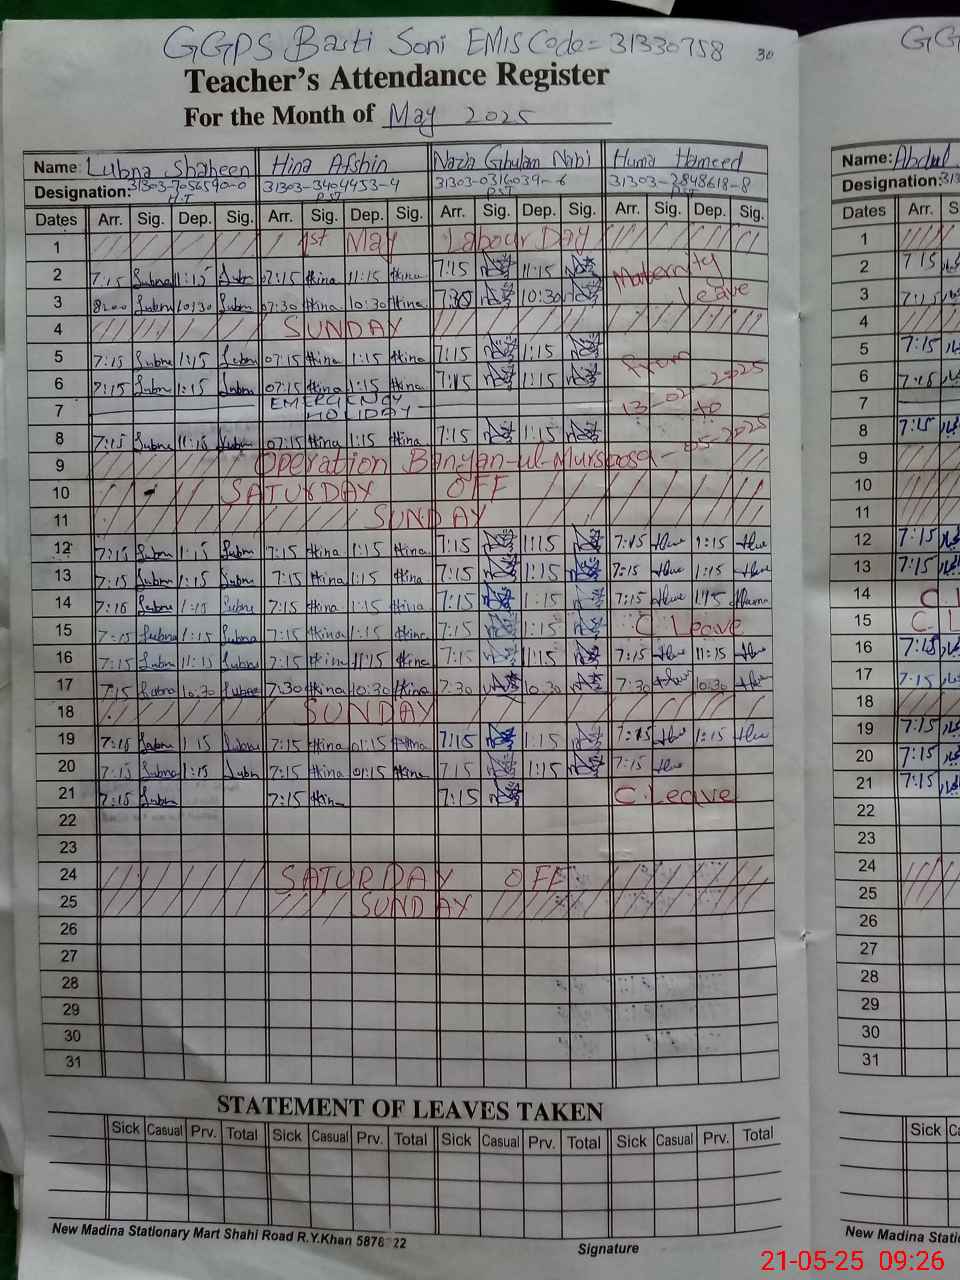 GGPS Basti Soni EMIS Code = 31330758 30
Teacher's Attendance Register
For the Month of May 2025
Name: Lubna Shaheen Hina Afshin Nazia Ghulam Nabi Huma Hameed
Designation: 31303-7056590-0 31303-3404453-4 31303-0316039-6 31303-2848618-8
H.T PST PST PST
Dates Arr. Sig. Dep. Sig. Arr. Sig. Dep. Sig. Arr. Sig. Dep. Sig. Arr. Sig. Dep. Sig.
1 1st May Labour Day
2 7:15 Lubna 11:15 Lubn 07:15 Hina 11:15 Hina 7:15 11:15 Maternity
3 8:00 Lubna 10:30 Lubn 07:30 Hina 10:30 Hina 7:30 10:30 Leave
4 SUNDAY
5 7:15 Lubn 1:15 Lubn 07:15 Hina 1:15 Hina 7:15 1:15 From
6 7:15 Lubn 1:15 Lubn 07:15 Hina 1:15 Hina 7:15 1:15 2025
7 EMERGENCY HOLIDAY 13-02 to
8 7:15 Lubna 11:15 Lubna 07:15 Hina 1:15 Hina 7:15 1:15 05-2025
9 Operation Banyan-ul-Mursoos
10 SATURDAY OFF
11 SUNDAY
12 7:15 Lubn 1:15 Lubn 7:15 Hina 1:15 Hina 7:15 1:15 7:15 1:15
13 7:15 Lubn 1:15 Lubn 7:15 Hina 1:15 Hina 7:15 1:15 7:15 1:15
14 7:15 Lubna 1:15 Lubna 7:15 Hina 1:15 Hina 7:15 1:15 7:15 1:15 Huma
15 7:15 Lubna 1:15 Lubna 7:15 Hina 1:15 Hina 7:15 1:15 C. Leave
16 7:15 Lubn 11:15 Lubna 7:15 Hina 11:15 Hina 7:15 11:15 7:15 11:15
17 7:15 Lubna 10:30 Lubna 7:30 Hina 10:30 Hina 7:30 10:30 7:30 10:30
18 SUNDAY
19 7:15 Lubna 1:15 Lubna 7:15 Hina 01:15 Hina 7:15 1:15 7:15 1:15
20 7:15 Lubna 1:15 Lubn 7:15 Hina 01:15 Hina 7:15 1:15 7:15
21 7:15 Lubn 7:15 Hin 7:15 C. Leave
22
23
24 SATURDAY OFF
25 SUNDAY
26
27
28
29
30
31
STATEMENT OF LEAVES TAKEN
Sick Casual Prv. Total Sick Casual Prv. Total Sick Casual Prv. Total Sick Casual Prv. Total
New Madina Stationary Mart Shahi Road R.Y.Khan 5878 22
Signature
GG
Name: Abdul
Designation: 313
Dates Arr. Sig.
1
2 7:15
3 7:15
4
5 7:15
6 7:15
7
8 7:15
9
10
11
12 7:15
13 7:15
14 C.
15 C. L
16 7:15
17 7:15
18
19 7:15
20 7:15
21 7:15
22
23
24
25
26
27
28
29
30
31
Sick
New Madina Statio
21-05-25 09:26